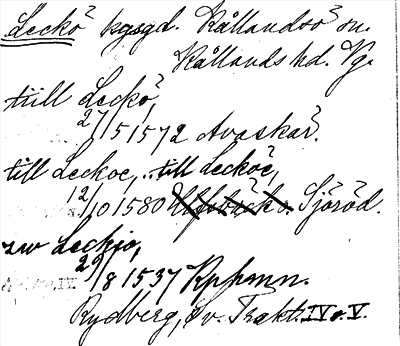 Leckö kgsgd. Kållandsö sn.
Kållands hd. Vg.
tiill Leckö,
27/5 1572 Avaskär.
till Leckoe, .. till Lecköö,
12/10 1580 Sjöröd.
zw Leckio,
29/8 1537 Kphmn.
Rydberg, Sv. Trakt. IV o. V.